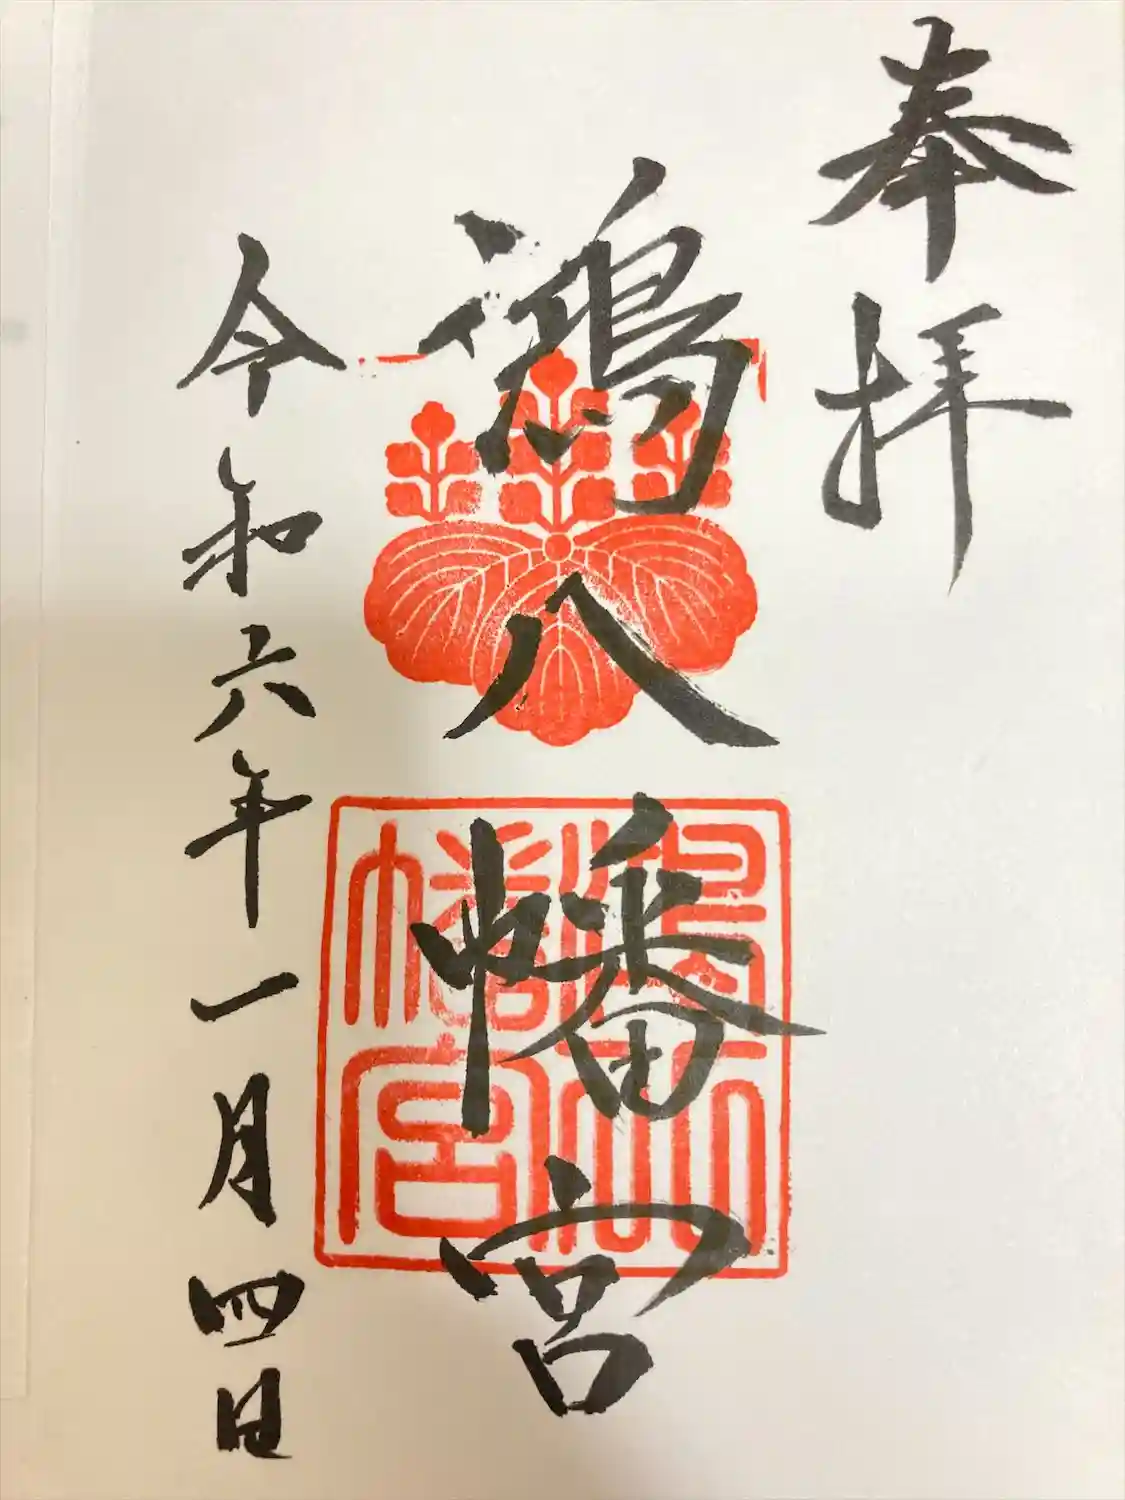 奉拝
鴻八幡宮
鴻八
幡宮
令和六年一月四日